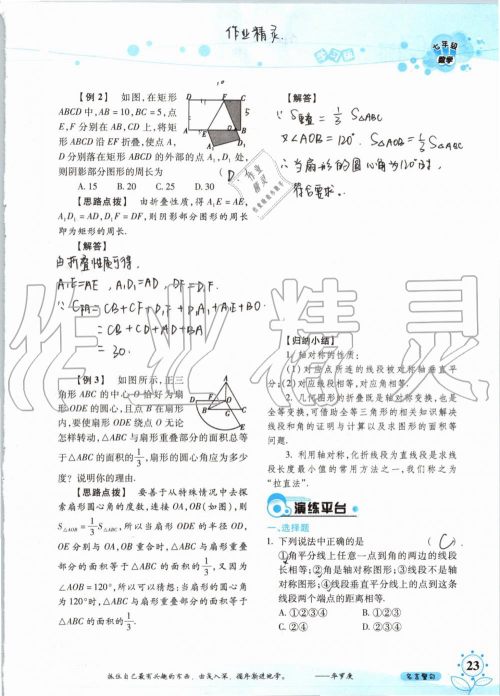 作业精灵.
练习课
七年级
数学
【例2】 如图,在矩形
ABCD中,AB=10,BC=5,点
E,F分别在AB,CD上,将矩
形ABCD沿EF折叠,使点A,
D分别落在矩形ABCD的外部的点A₁,D₁处,
则阴影部分图形的周长为 ( D.
A. 15 B. 20 C. 25 D. 30
【思路点拨】 由折叠性质,得A₁E=AE,
A₁D₁=AD,D₁F=DF,则阴影部分图形的周长
即为矩形的周长.
【解答】
由折叠性质可得,
A₁E=AE,A₁D₁=AD,DF=D₁F.
=CB+CF+D₁F+D₁A₁+A₁E+BO
=CB+CD+AD+BA
=30.
【例3】 如图所示,正三
角形ABC的中心O恰好为扇
形ODE的圆心,且点B在扇形
内,要使扇形ODE绕点O无论
怎样转动,△ABC与扇形重叠部分的面积总等
于△ABC的面积的1/3,扇形的圆心角应为多少
度?说明你的理由.
【思路点拨】 要善于从特殊情况中去探
索扇形圆心角的度数,连接OA,OB(如图),则
S△AOB=1/3 S△ABC,所以当扇形ODE的半径OD,
OE分别与OA,OB重合时,△ABC与扇形重叠
部分的面积等于△ABC的面积的1/3,又因为
∠AOB=120°,所以可以猜想:当扇形的圆心角
为120°时,△ABC与扇形重叠部分的面积等于
△ABC的面积的1/3.
【解答】
∵ S重叠=1/3 S△ABC
又∠AOB=120°, S△AOB=1/3 S△ABC
∴当扇形的圆心角为120°时,
符合要求.
【归纳小结】
1. 轴对称的性质:
(1)对应点所连的线段被对称轴垂直平
分;(2)对应线段相等,对应角相等.
2. 几何图形的折叠既是轴对称变换,也是
全等变换,可借助全等三角形的相关知识解决
线段和角的证明与计算以及求图形的面积等
问题.
3. 利用轴对称,化折线段为直线段是求线
段长度最小值的常用方法之一,我们称之为
“拉直法”.
演练平台
一、选择题
1. 下列说法中正确的是 ( C )
①角平分线上任意一点到角的两边的线段
长相等;②角是轴对称图形;③线段不是轴
对称图形;④线段垂直平分线上的点到这条
线段两个端点的距离相等.
A. ①②③④ B. ①②③
C. ②④ D. ②③④
抓住自己最有兴趣的东西,由浅入深,循序渐进地学。 ——华罗庚
名言警句
23
作业精灵